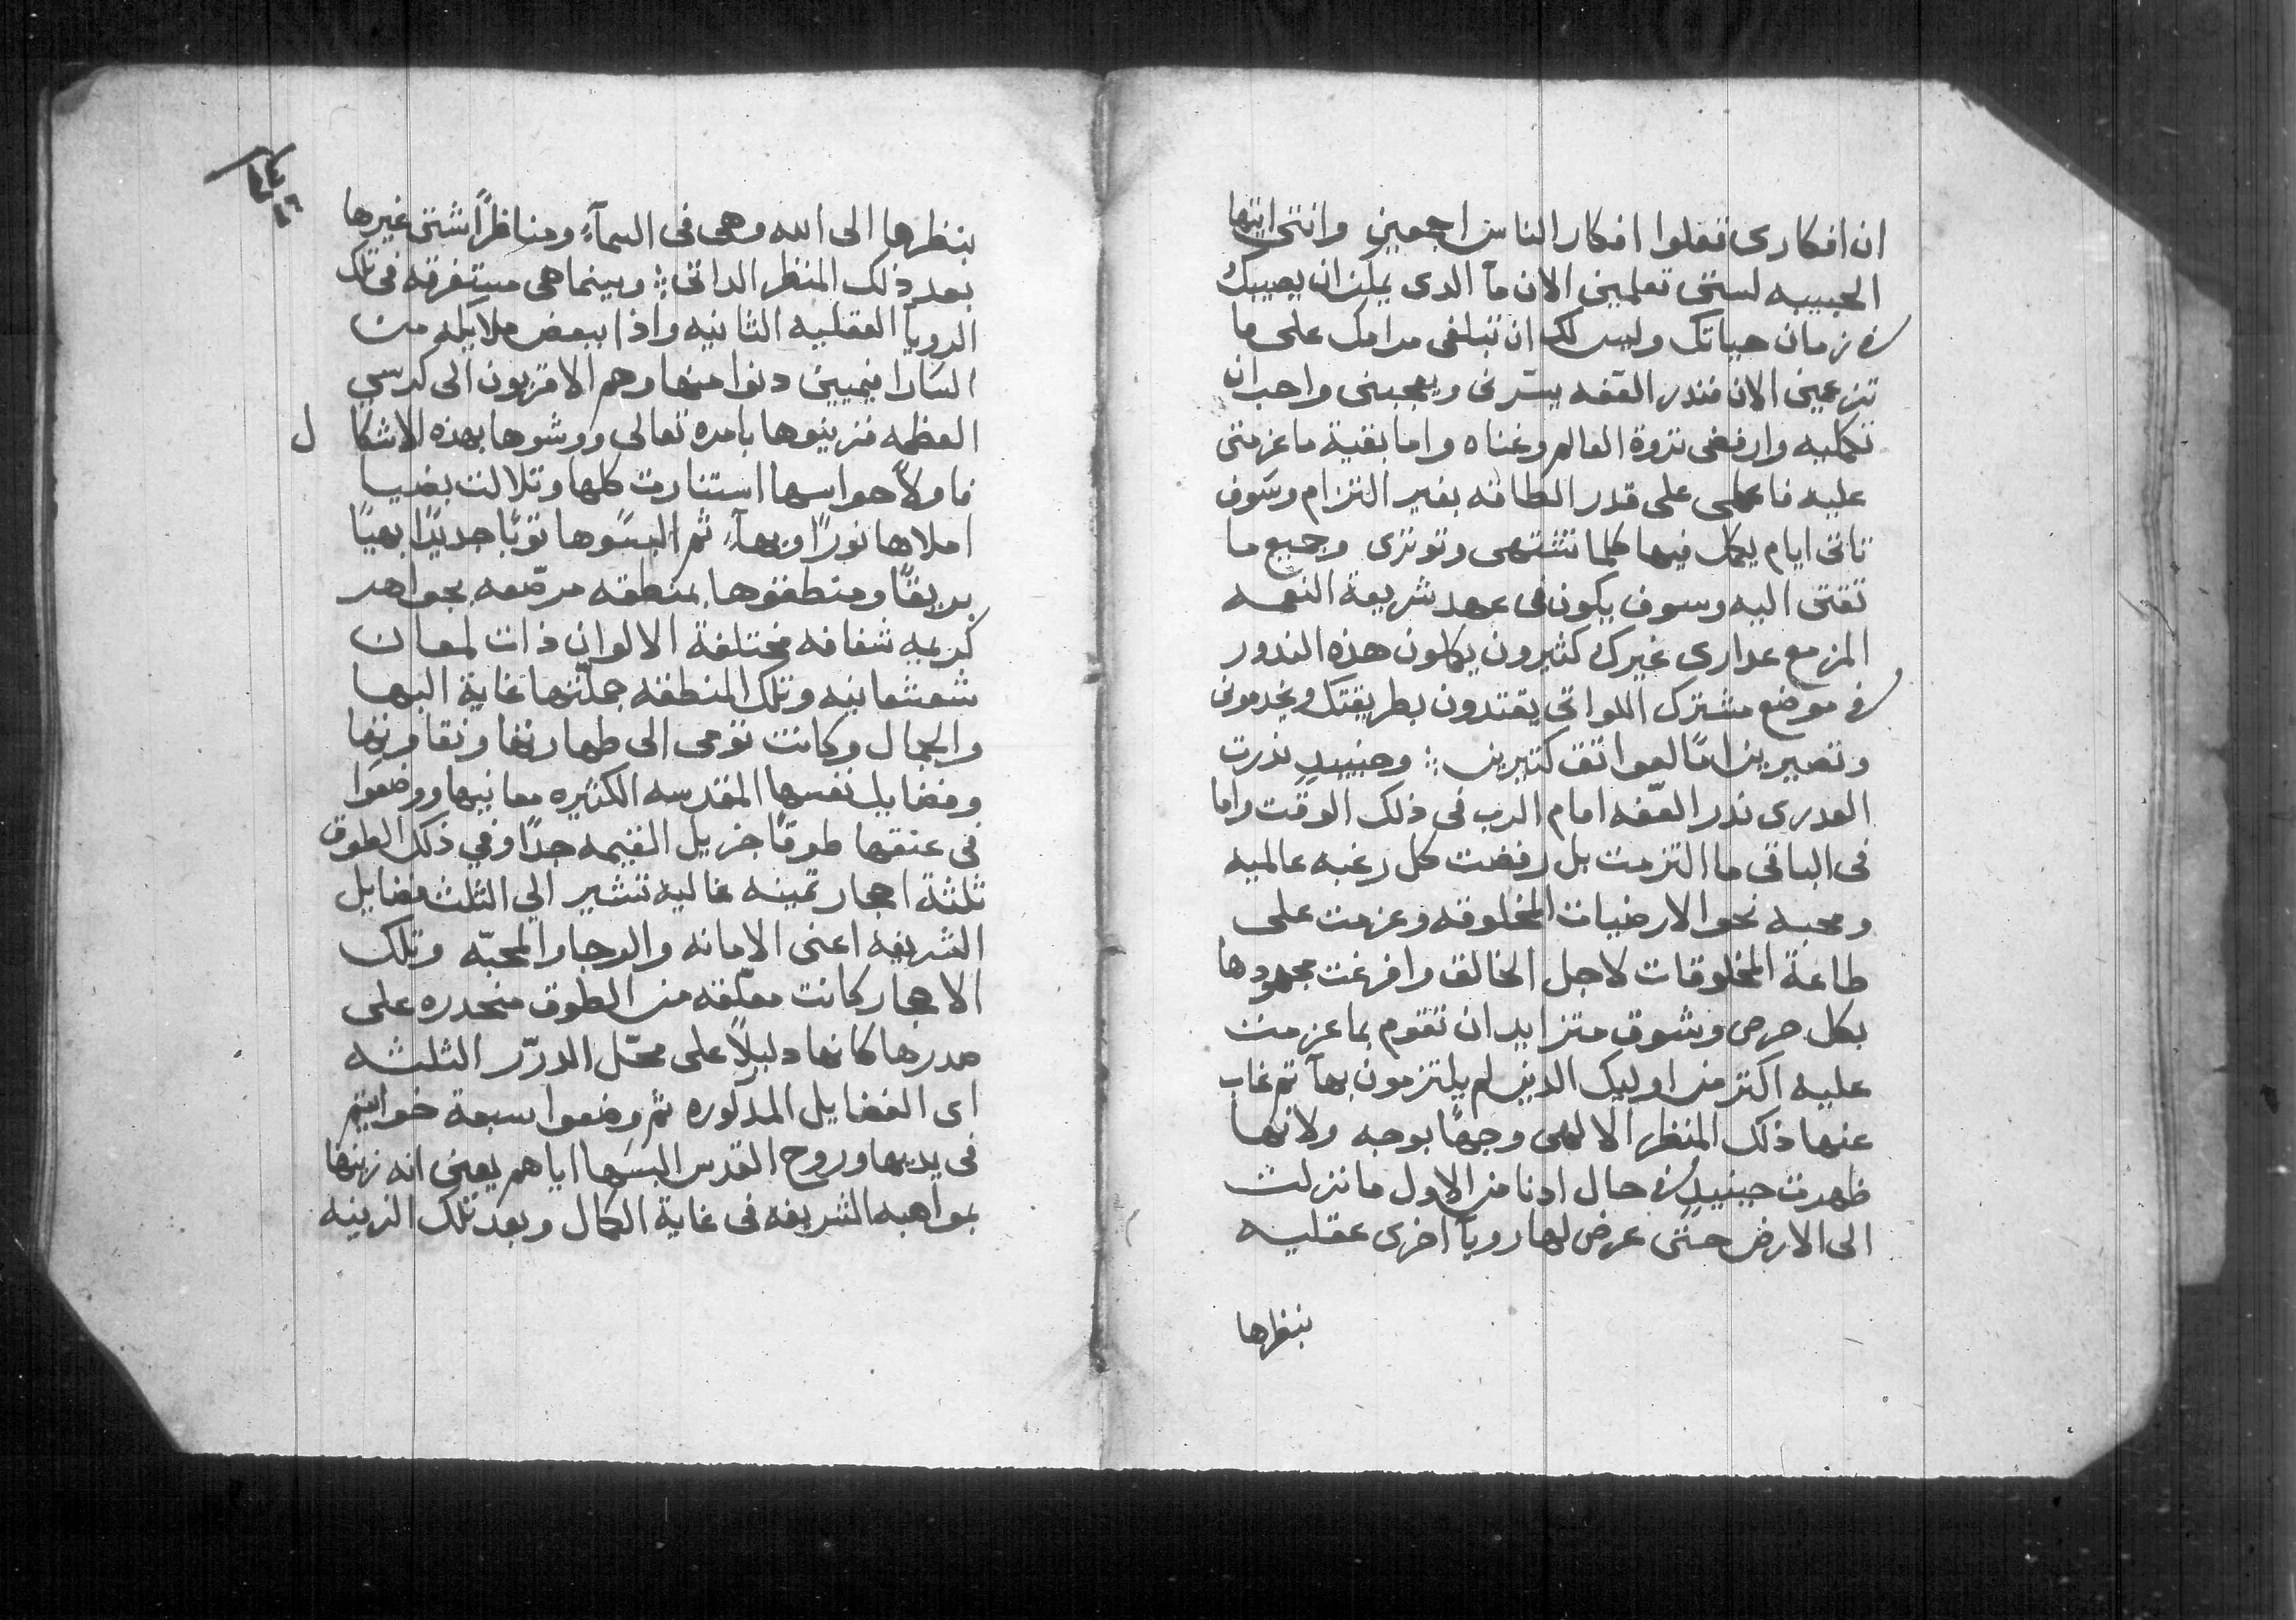 ان افكارى تفعلوا افكار الناس اجمعين وانتى ايتها
الحبيبه لستى تعلمين الان ما الدى يمكن ان يصيبك
فى زمان حياتك وليس لك ان تبلغى مرامك على ما
تزعمين الان فندر العفه يسّرنى ويعجبنى واحب ان
تكمليه وارفضى ثروة العالم وغناه واما بقية ما عزمتى
عليه فاعملى على قدر الطاقه بغير التزام وسوف
تاتى ايام يكمل فيها كلما تشتهى وتوثرى وجميع ما
تقتى اليه وسوف يكون فى عهد شريعة النعمه
المزمع عدارى غيرك كثيرون يكملون هذه الندور
فى موضع مشترك اللواتى يقتدون بطريقتك ويخدمونى
وتصيرين امًا لعواتق كتيرين ⁘ وحينيدٍ ندرت
العدرى ندر العفّه امام الرب فى ذلك الوقت واما
فى الباقى ما التزمت بل رفضت كل رغبه عالميه
ومحبه نحو الارضيات المخلوقه وعزمت على
طاعة المخلوقات لاجل الخالق وافرغت مجهودها
بكل حرص وشوق متزايد ان تقوم بما عزمت
عليه اكتر من اوليك الدين لم يلتزمون بها تم غاب
عنها ذلك المنظر الالهى وجهًا بوجه ولانها
ظهرت حينيدٍ فى حال ادنا من الاول ما نزلت
الى الارض حتى عرض لها رويا اخرى عقليه
بنظرها
بنظرها الى الله وهى فى السمآءِ ومناظرًا شتى غيرها
بعد ذلك المنظر الداتى ⁘ وبينما هى مستغرقه فى تلك
الرويا العقليه الثانيه واذا ببعض ملايكه من
السارافيميين دنوا منها وهم الاقربون الى كرسي
العظمه فزينوها بامره تعالى ووشوها بهذه الاشكال
فاولاً حواسها استنارت كلها وتلالت بضيا
املاها نورًا وبهآءً ثم البسوها ثوبًا جديدًا بهيًا
بريقًا ومنطقوها بمنطقه مرصّعه بجواهر
كريمه شفافه مختلفة الالوان ذات لمعان
شعشعانيه وتلك المنطقه جملّتها غاية البها
والجمال وكانت تومى الى طهارتها ونقاوتها
وفضايل نفسها المقدسه الكتيره معانيها ووضعوا
فى عنقها طوقًا جزيل القيمه جدًا وفي ذلك الطوق
ثلثة احجار تمينه غاليه تشير الي الثلث فضايل
الشريفه اعنى الامانه والرجا والمحبّه وتلك
الاحجار كانت معلّقه من الطوق منحدره على
صدرها كانها دليلاً على محّل الدرّر الثلثه
اى الفضايل المدكوره ثم وضعوا سبعة خواتيم
فى يديها وروح القدس البسها اياهم يعنى انه زينها
بمواهبه الشريفه فى غاية الكمال وبعد تلك الزينه